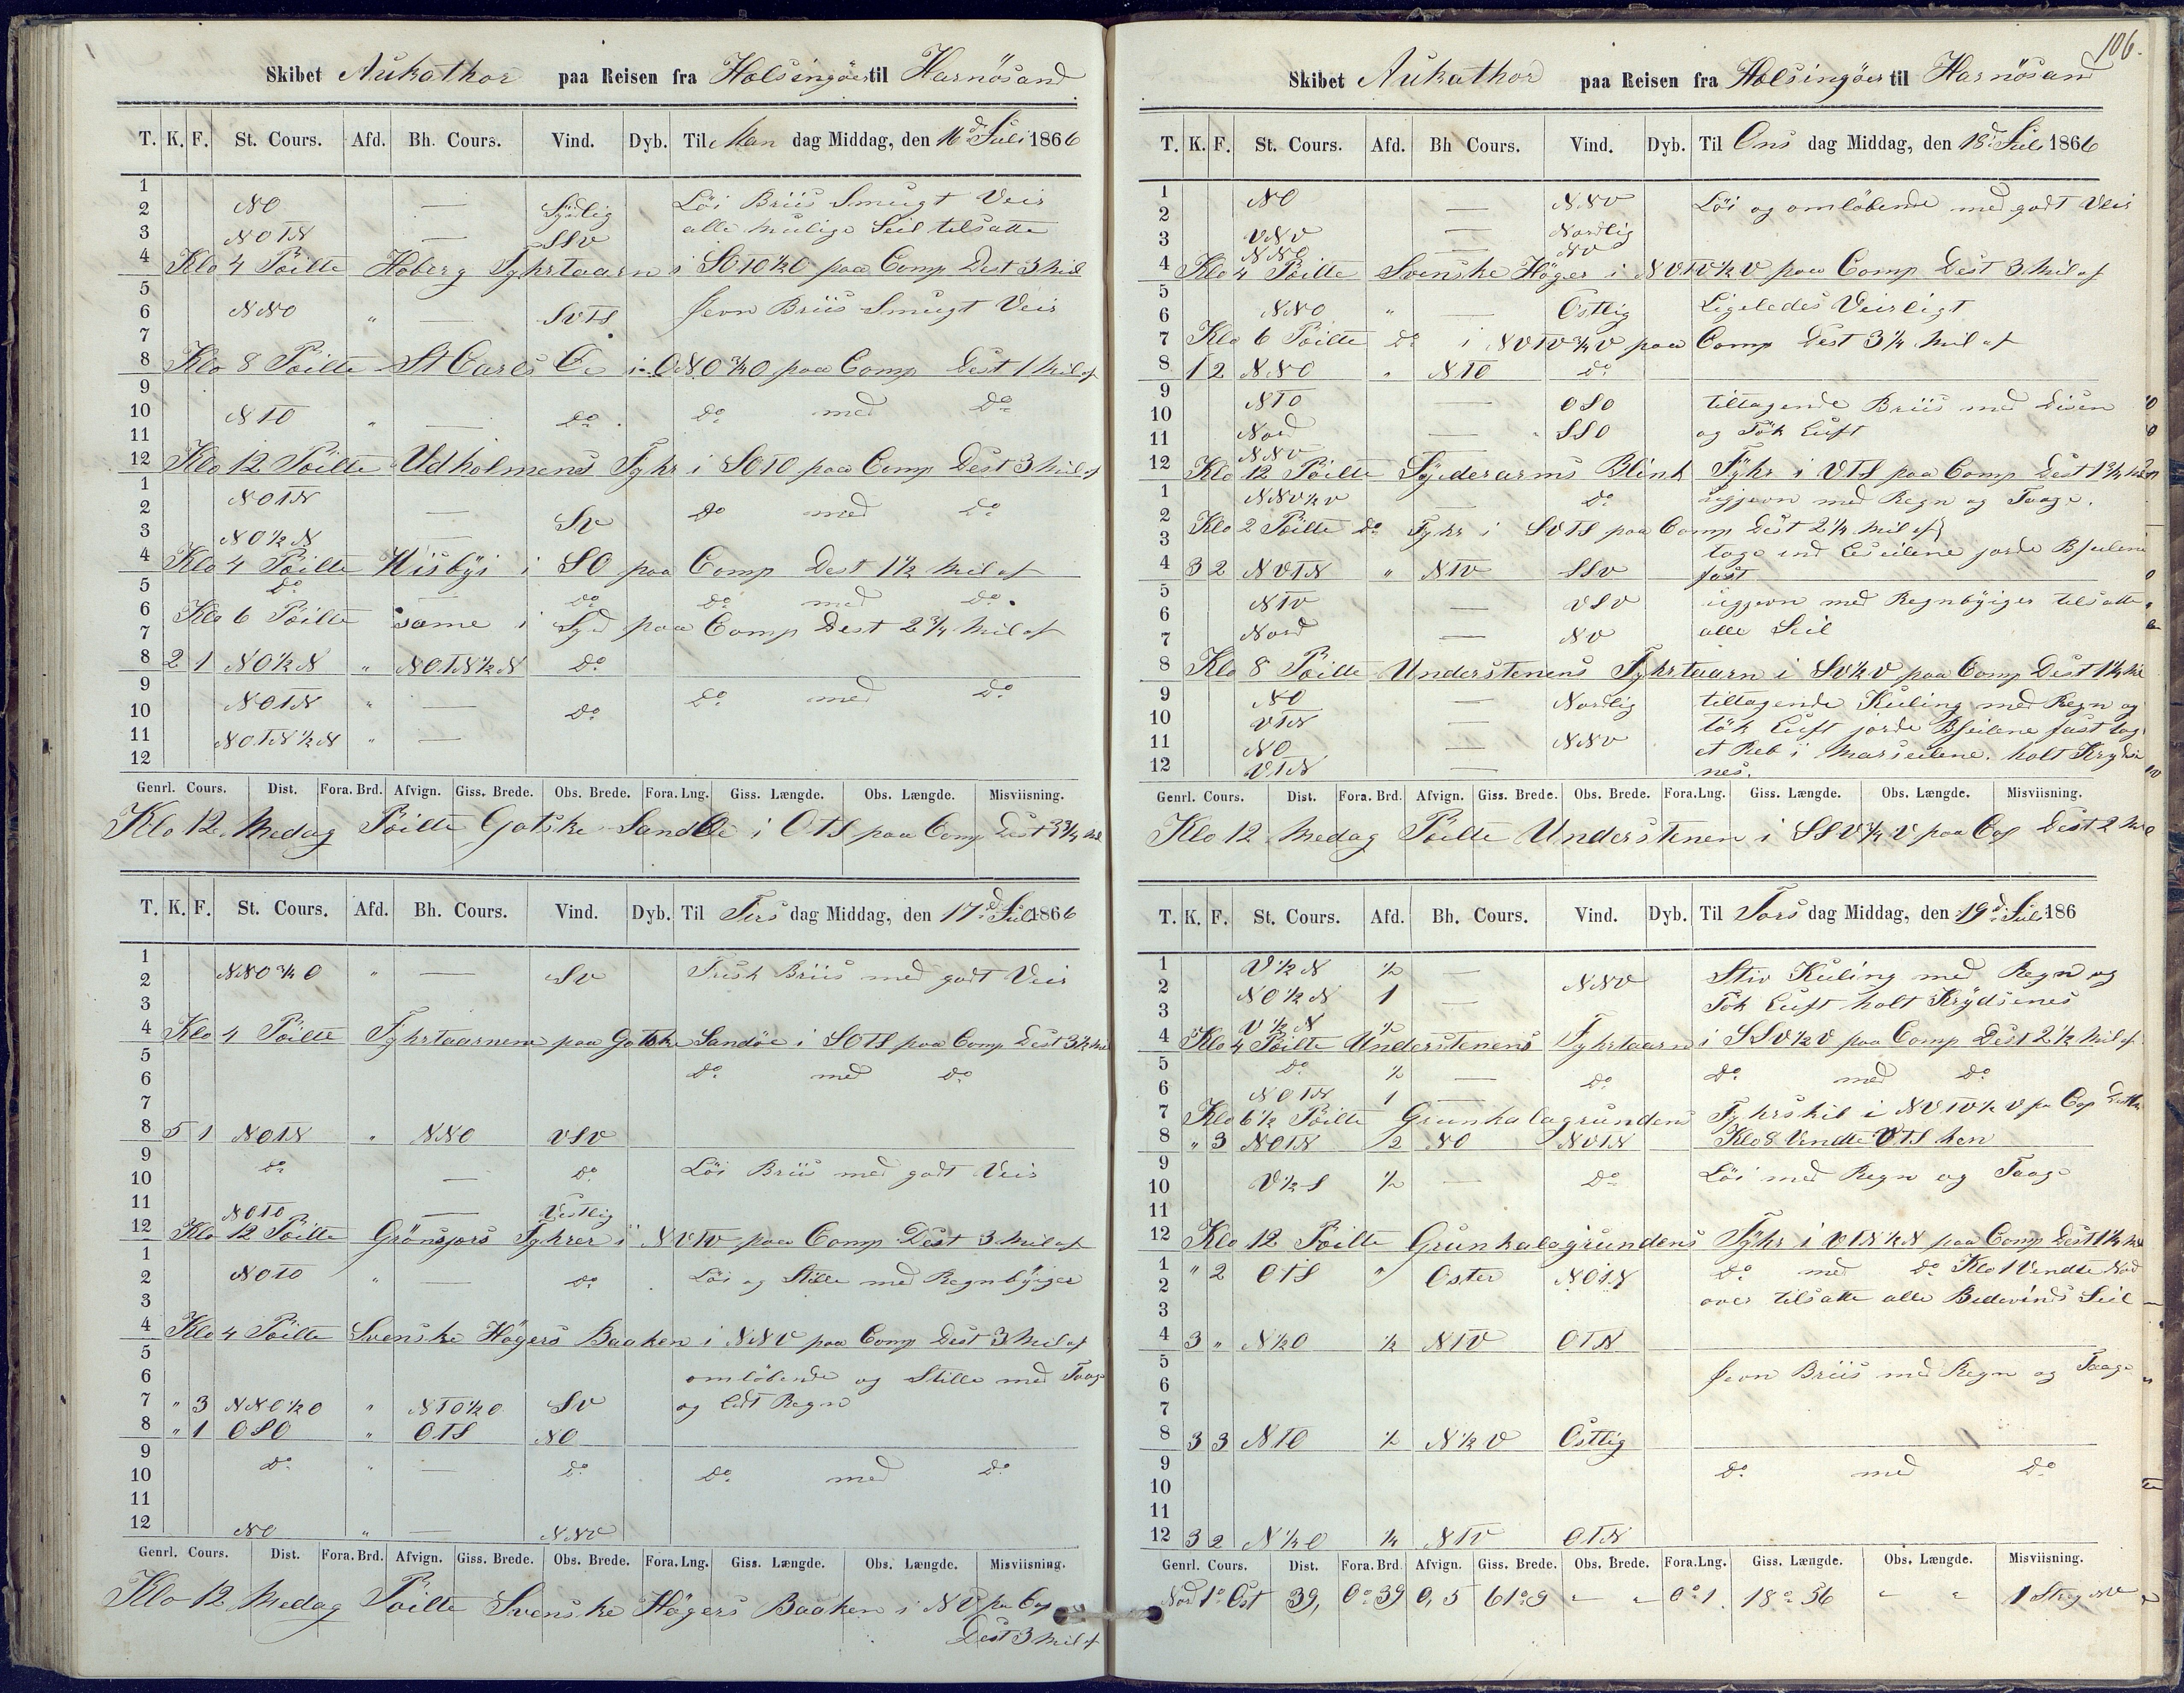 Skibet Aukathor paa Reisen fra Holsingöer til Harnösand
T. K. F. St. Cours. Afd. Bh. Cours. Vind. Dyb. Til Man dag Middag, den 16d Juli 1866
1
2 NO — Sÿdlig Löi Briis Smugt Veir
3 NOTN — SSV alle mulige Seil tilsatte
4 Klo 4 Pöilte Hoberg Fyhrtaarn i SOTO½O paa Comp Dest 3 Mil af
5
6 NNO " — SVTS Jevn Briis Smugt Veir
7
8 Klo 8 Pöilte St Carls Öe i ONO¾O paa Comp Dest 1 Mil af
9
10 NTO " — do do med do
11
12 Klo 12 Pöilte Udholmens Fyhr i SOTO paa Comp Dest 3 Mil af
1 NOTN
2 — SV do med do
3 NO½N —
4 Klo 4 Pöilte Wisbÿi i SO paa Comp Dest 1½ Mil af
5 do — do do med do
6 Klo 6 Pöilte same i Syd paa Comp Dest 2¾ Mil af
7
8 2 1 NO½N " NOTN½N do
9
10 NOTN " — do do med do
11 NOTN½N " —
12
Genrl. Cours. Dist. Fora. Brd. Afvign. Giss. Brede. Obs. Brede. Fora. Lng. Giss. Længde. Obs. Længde. Misviisning.
Klo 12 Medag Pöilte Gotske SandÖe i OTS paa Comp Dest 3¾ Mil
T. K. F. St. Cours. Afd. Bh. Cours. Vind. Dyb. Til Tirs dag Middag, den 17d Juli 1866
1
2 NNO¾O " — SV Frisk Briis med godt Veir
3
4 Klo 4 Pöilte Fyhrtaarnene paa Gotske Sandöe i SOTS paa Comp Dest 3½ Mil
5
6 do med do
7
8 5 1 NOTN " NNO VSV
9
10 do — do Löi Briis med godt Veir
11 NOTO — Vestlig
12 Klo 12 Pöilte Grönsjærs Fyhrer i NVTV paa Comp Dest 3 Mil af
1
2 NOTO " — do Löi og Stille med Regnbÿiger
3
4 Klo 4 Pöilte Svenske Högers Baaken i NNV paa Comp Dest 3 Mil af
5
6 omlöbende og Stille med Taage
7 " 3 NNO½O " NTO½O SV og lidt Regn
8 " 1 OSO " OTS NO
9
10 do " — do do med do
11
12 NO " — NNV
Genrl. Cours. Dist. Fora. Brd. Afvign. Giss. Brede. Obs. Brede. Fora. Lng. Giss. Længde. Obs. Længde. Misviisning.
Klo 12 Medag Pöilte Svenske Högers Baaken i NV paa Cop
Dest 3 Mil af
106.
Skibet Aukathor paa Reisen fra Holsingöer til Harnösand
T. K. F. St. Cours. Afd. Bh Cours. Vind. Dyb. Til Ons dag Middag, den 18d Juli 1866
1 NO — NNV Löi og omlöbende med godt Veir
2
3 VNV — Nordlig
NNO — NV
4 Klo 4 Pöilte Svenske Höger i NVTV½V paa Comp Dest 3 Mil af
5
6 NNO " — Östlig Ligeledes Veirligt
7 Klo 6 Pöilte do i NVTV¾V paa Comp Dest 3¼ Mil af
8 1 2 NNO " NTO do
9 NTO — OSO tiltagende Briis med Disen
10
11 Nord — SSO og Tök Luft
NNV
12 Klo 12 Pöilte Syderarms Blink Fÿhr i VTS paa Comp Dest 1¾ Mil
1 NNV½V — do ugjevn med Regn og Taage.
2 Klo 2 Pöilte do Fyhr i SVTS paa Comp Dest 2¼ Mil af
3 togs ind Leseilene jorde Bseilene
4 3 2 NVTN " NTV SSV fast
5
6 NTV VSV ugjevn med Regnbÿiger tilsatte
7 Nord — NV alle Seil
8 Klo 8 Pöilte Understenens Fyhrtaarn i SV½V paa Comp Dest 1¼ Mil
9 NO — Nordlig tiltagende Kuling med Regn og
10 VTN — tök Luft jorde Bseilene fast tog
11 NO — NNV et Reb i Marseilene. holt Krydse
12 VTN — nes.
Genrl. Cours. Dist. Fora. Brd. Afvign. Giss. Brede. Obs. Brede. Fora. Lng. Giss. Længde. Obs. Længde. Misviisning.
Klo 12 Medag Pöilte Understenen i SSV¾V paa Cop Dest 2 Mil
T. K. F. St. Cours. Afd. Bh. Cours. Vind. Dyb. Til Tors dag Middag, den 19d Juli 186
1 V½N ½ — NNV Stiv Kuling med Regn og
2 NO½N 1 —
3 Tök Luft holt Krÿdsenes
V½N ½
4 Klo 4 Pöilte Understenens Fyhrtaarn i SSV½V paa Comp Dest 2½ Mil af
5 do ½ — do do med do
6 NOTN 1 —
7 Klo 6½ Pöilte Grunkalagrunden Fyhrskib i NVTV½V pa Cop
8 " 3 NOTN 2 NO NVTN Klo 8 Vendte VTS hen
9
10 V½S ½ — do Löi med Regn og Taage
11
12 Klo 12 Pöilte Grunkalagrundens Fÿhr i VTN½N paa Comp Dest 1½ Mil
1 " 2 OTS " Öster NOTN do med do Klo 1 Vendte Nord
2 over tilsatte alle Bidevinds Seil
3
4 3 " N½O ½ NTV OTN
5
6 Jevn Briis med Regn og Taage
7
8 3 3 NTO ½ N½V Östlig
9 do med do
10
11
12 3 2 N¼O ¼ NTV OTN
Genrl. Cours. Dist. Fora. Brd. Afvign. Giss. Brede. Obs. Brede. Fora. Lng. Giss. Længde. Obs. Længde. Misviisning.
Nord 1° Ost 39, 0° 39 0,5 61° 9 " " 0° 1. 18° 56 " " 1 Streg NV